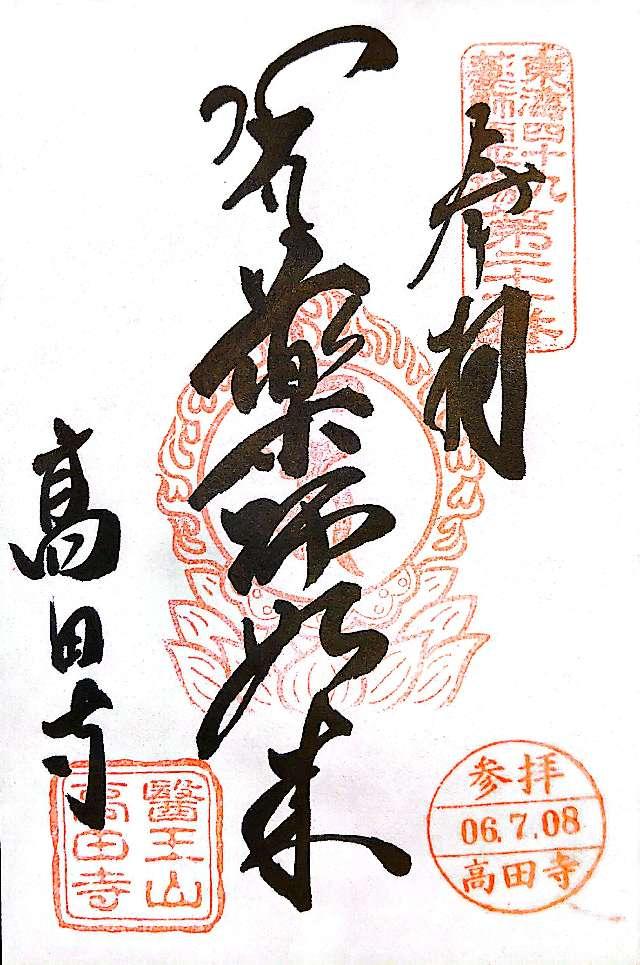 東海四十九
薬師霊場
奉拝
薬師如来
高田寺
醫王山
高田寺
参拝
06.7.08
高田寺